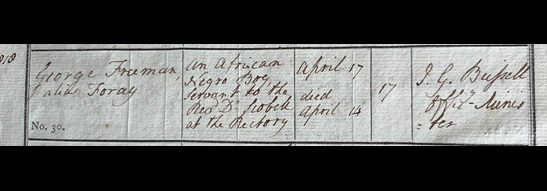 1818
George Freeman
alias Foray
No. 30.
an African
Negro Boy
servant to the
Revd Dr Scobell
at the Rectory
April 17
died
April 14
17
J. G. Bussell
Offig Minis
=ter